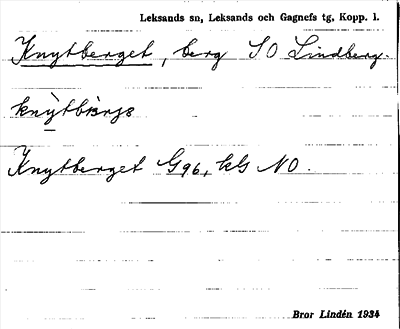 Leksands sn, Leksands och Gagnefs tg, Kopp. l.
Knytberget, berg SO Lindberg.
Knytberget G96, kls NO.
Bror Lindén 1934